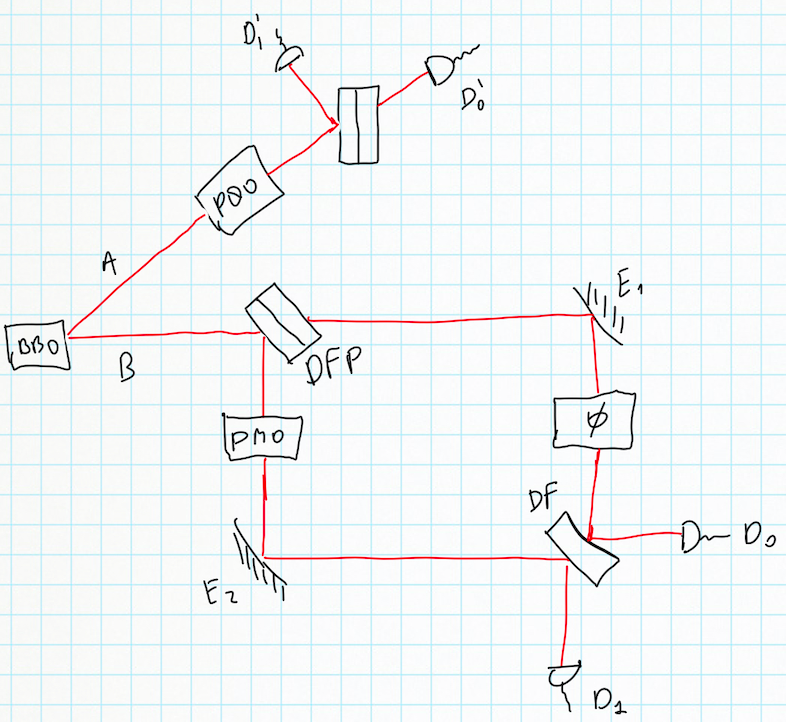 D'1
D'0
PQO
A
BBO
B
DFP
E1
PMO
ϕ
DF
D0
E2
D1